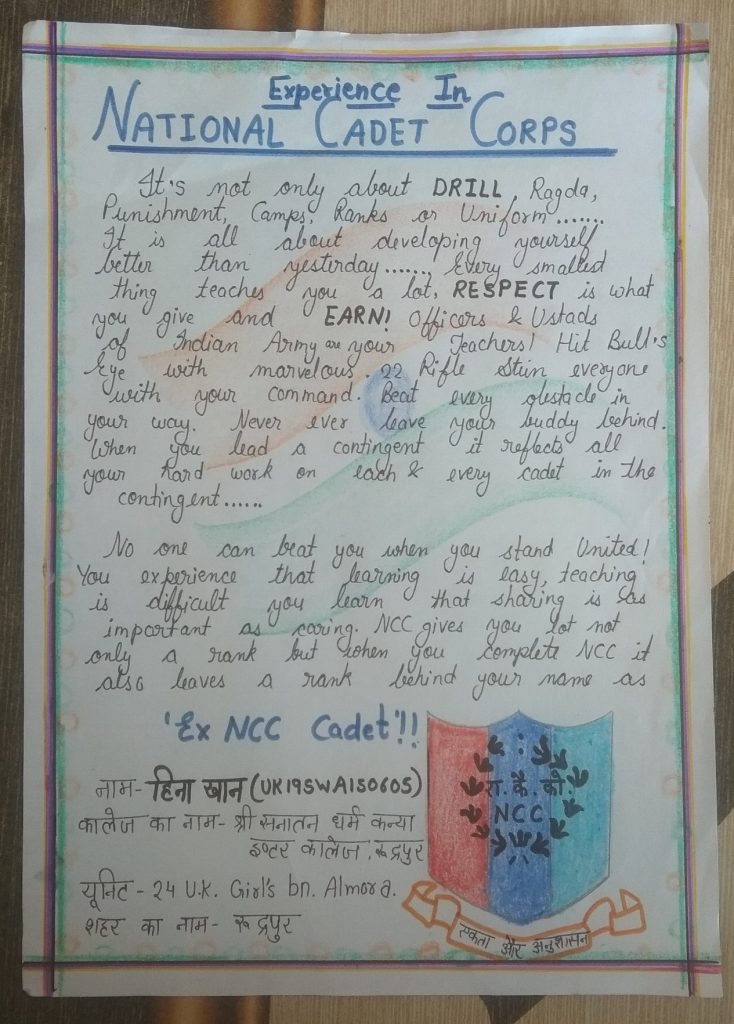 Experience In
NATIONAL CADET CORPS
It's not only about DRILL, Ragda,
Punishment, Camps, Ranks or Uniform.......
It is all about developing yourself
better than yesterday......, Every smallest
thing teaches you a lot, RESPECT is what
you give and EARN! Officers & Ustads
of Indian Army are your Teachers! Hit Bull's
Eye with marvelous .22 Rifle Stun everyone
with your command. Beat every obstacle in
your way. Never ever leave your buddy behind.
When you lead a contingent it reflects all
your hard work on each & every cadet in the
contingent......
No one can beat you when you stand United!
You experience that learning is easy, teaching
is difficult you learn that sharing is as
important as caring. NCC gives you lot not
only a rank but when you complete NCC it
also leaves a rank behind your name as
'Ex NCC Cadet'!!
नाम- हिना खान (UK19SWA150605)
कालेज का नाम- श्री सनातन धर्म कन्या
इण्टर कालेज, रूद्रपुर
यूनिट - 24 U.K. Girl's bn. Almora.
शहर का नाम- रूद्रपुर
रा. कै. को.
NCC
एकता और अनुशासन